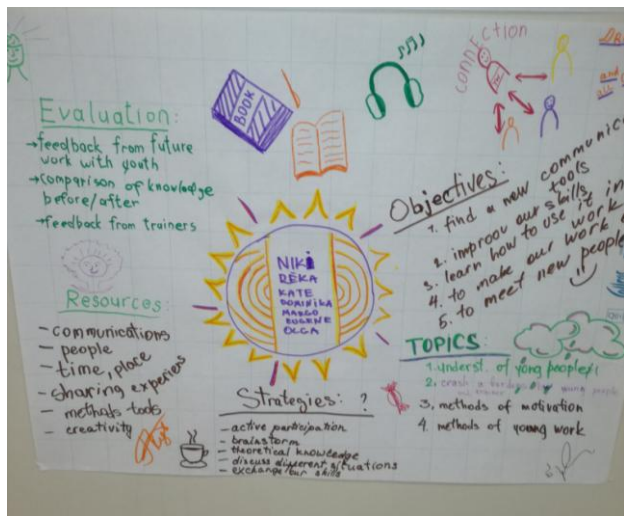 Evaluation:
→feedback from future
work with youth
→comparison of knowledge
before/after
→feedback from trainers
Resources:
- communications
- people
- time, place
- sharing experiens
- methods tools
- creativity
BOOK
NIKi
DĒKA
KATE
DOMINIKA
MARGO
EUGENE
OLGA
Strategies: ?
- active participation
- brainstorm
- theoretical knowledge
- discuss different situations
- exchange our skills
CONNECTION
and
all
Objectives:
1. find a new communic
tools
2. improov our skills
3. learn how to use it in
work
4. to make our work
5. to meet new people
TOPICS:
1. underst. of yong people/
2. crash a
young people
3. methods of motivation
4. methods of young work